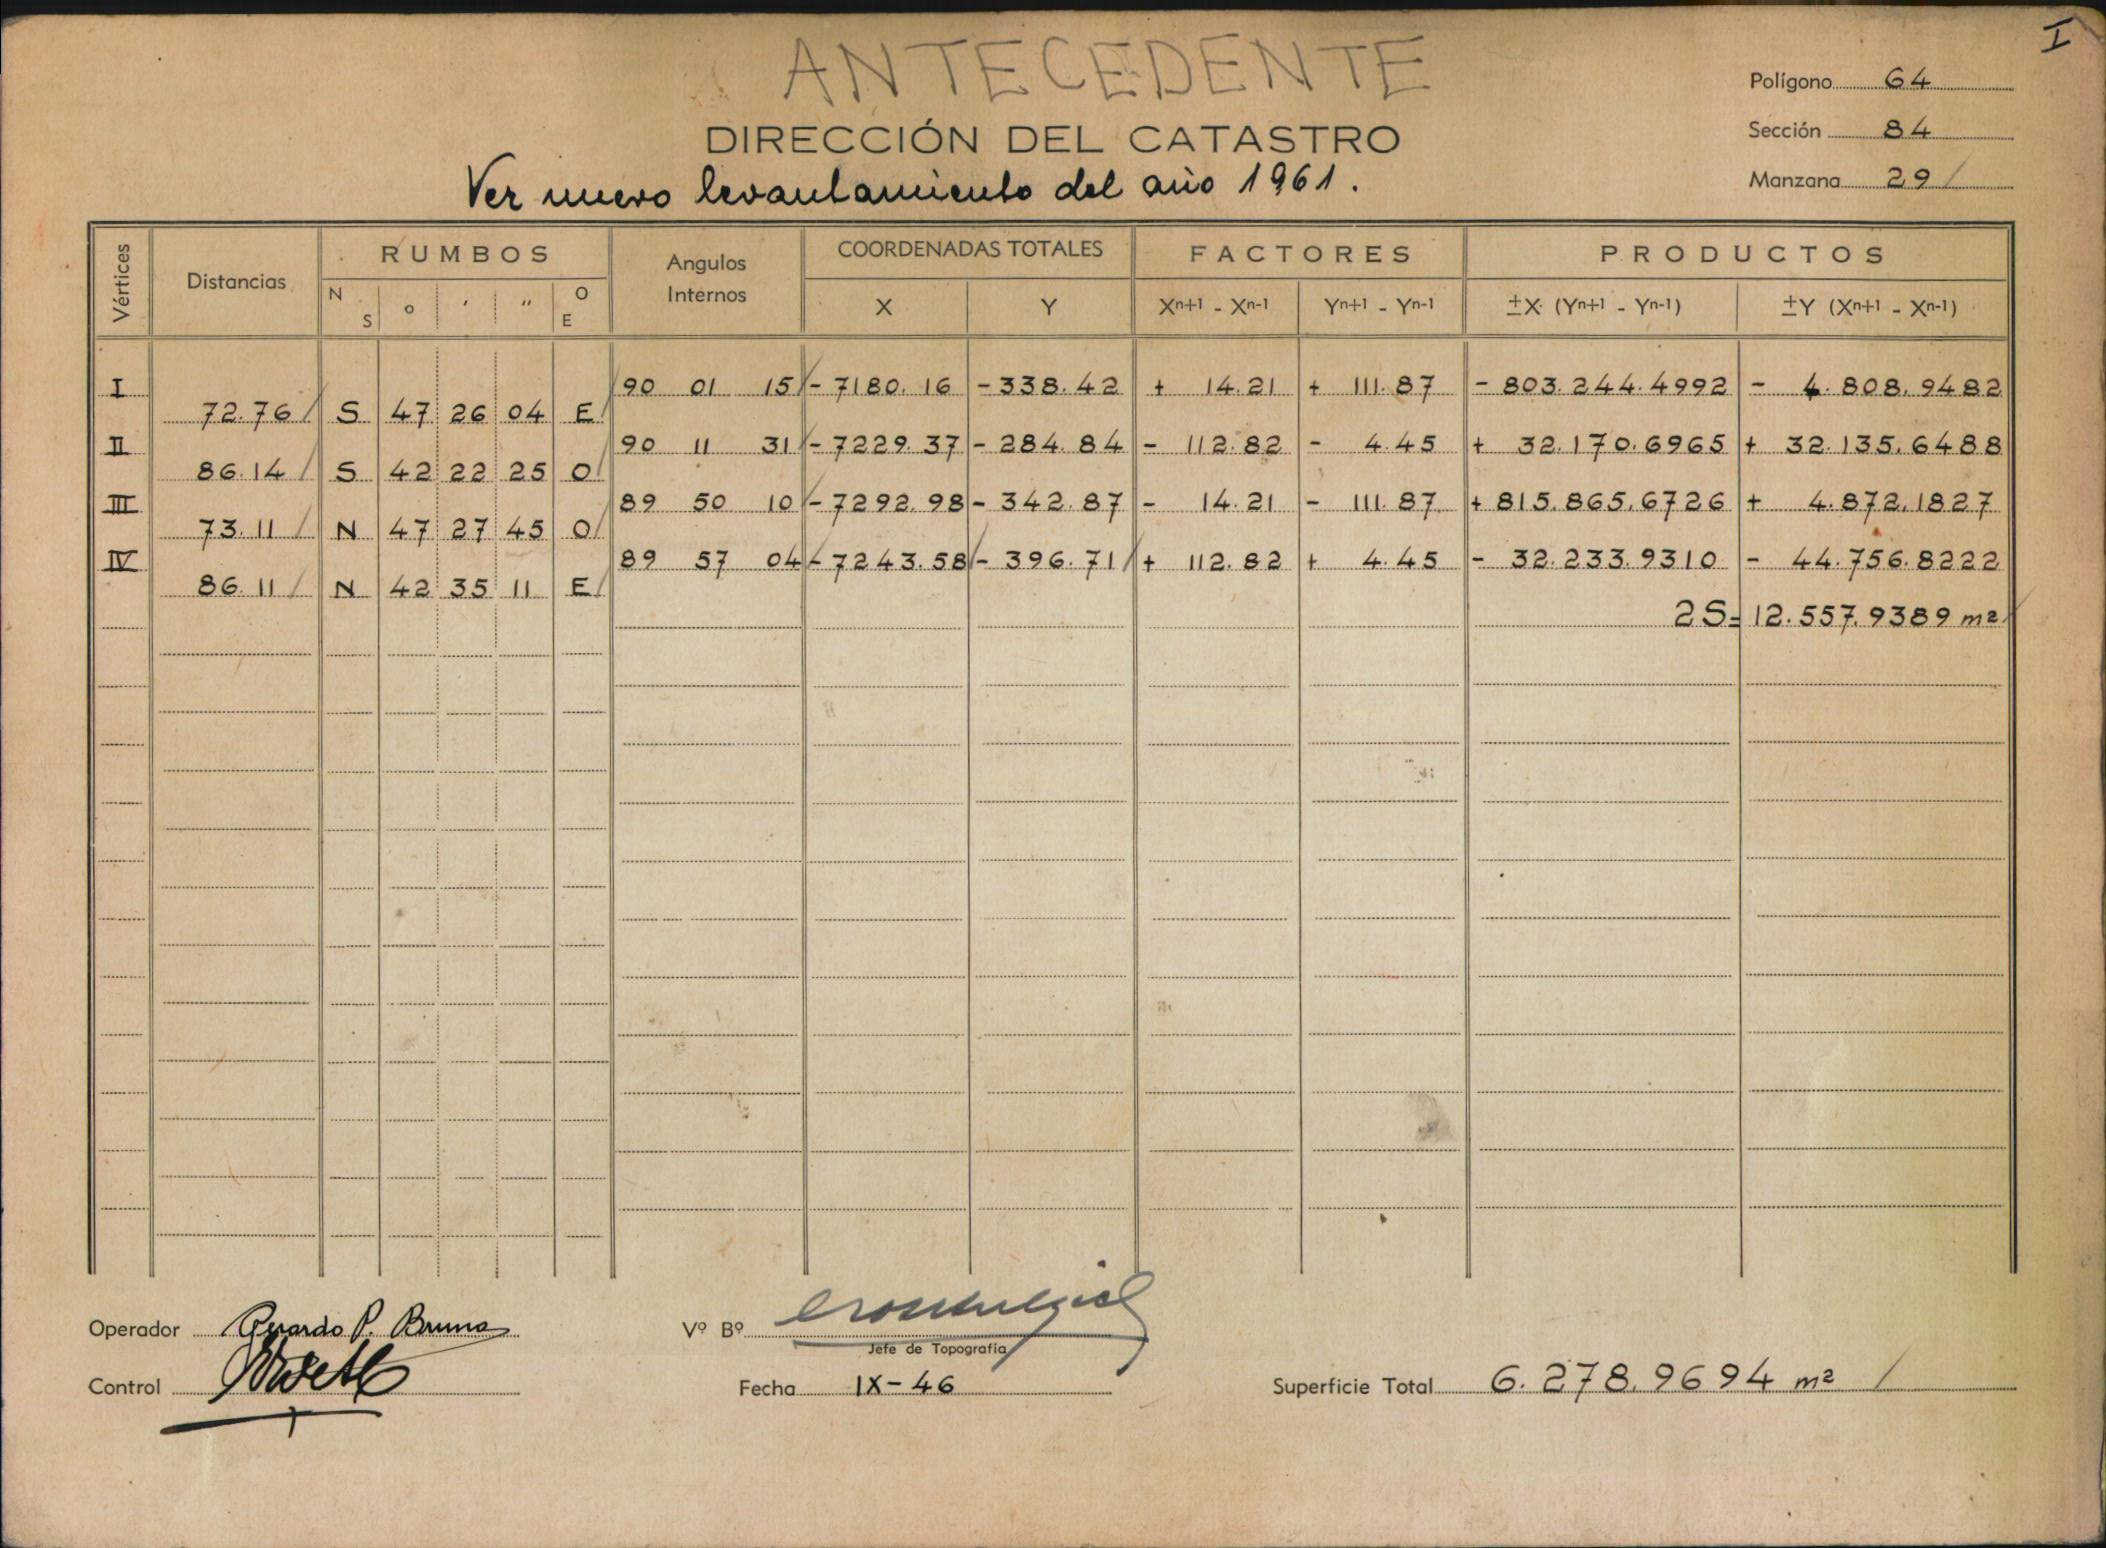 I
ANTECEDENTE
DIRECCIÓN DEL CATASTRO
Ver nuevo levantamiento del año 1961.
Polígono 64
Sección 84
Manzana 29 /
Vértices Distancias RUMBOS Angulos Internos COORDENADAS TOTALES FACTORES PRODUCTOS
N S ° ' " O E X Y Xn+1 - Xn-1 Yn+1 - Yn-1 ±X (Yn+1 - Yn-1) ±Y (Xn+1 - Xn-1)
I 90 01 15 - 7180.16 - 338.42 + 14.21 + 111.87 - 803.244.4992 - 4.808.9482
72.76 S 47 26 04 E
II 90 11 31 - 7229.37 - 284.84 - 112.82 - 4.45 + 32.170.6965 + 32.135.6488
86.14 S 42 22 25 O
III 89 50 10 - 7292.98 - 342.87 - 14.21 - 111.87 + 815.865.6726 + 4.872.1827
73.11 N 47 27 45 O
IV 89 57 04 - 7243.58 - 396.71 + 112.82 + 4.45 - 32.233.9310 - 44.756.8222
86.11 N 42 35 11 E
2S= 12.557.9389 m²
Operador Gerardo P. Bruno
Vº Bº
Jefe de Topografía
Control
Fecha IX-46
Superficie Total 6.278.9694 m² /